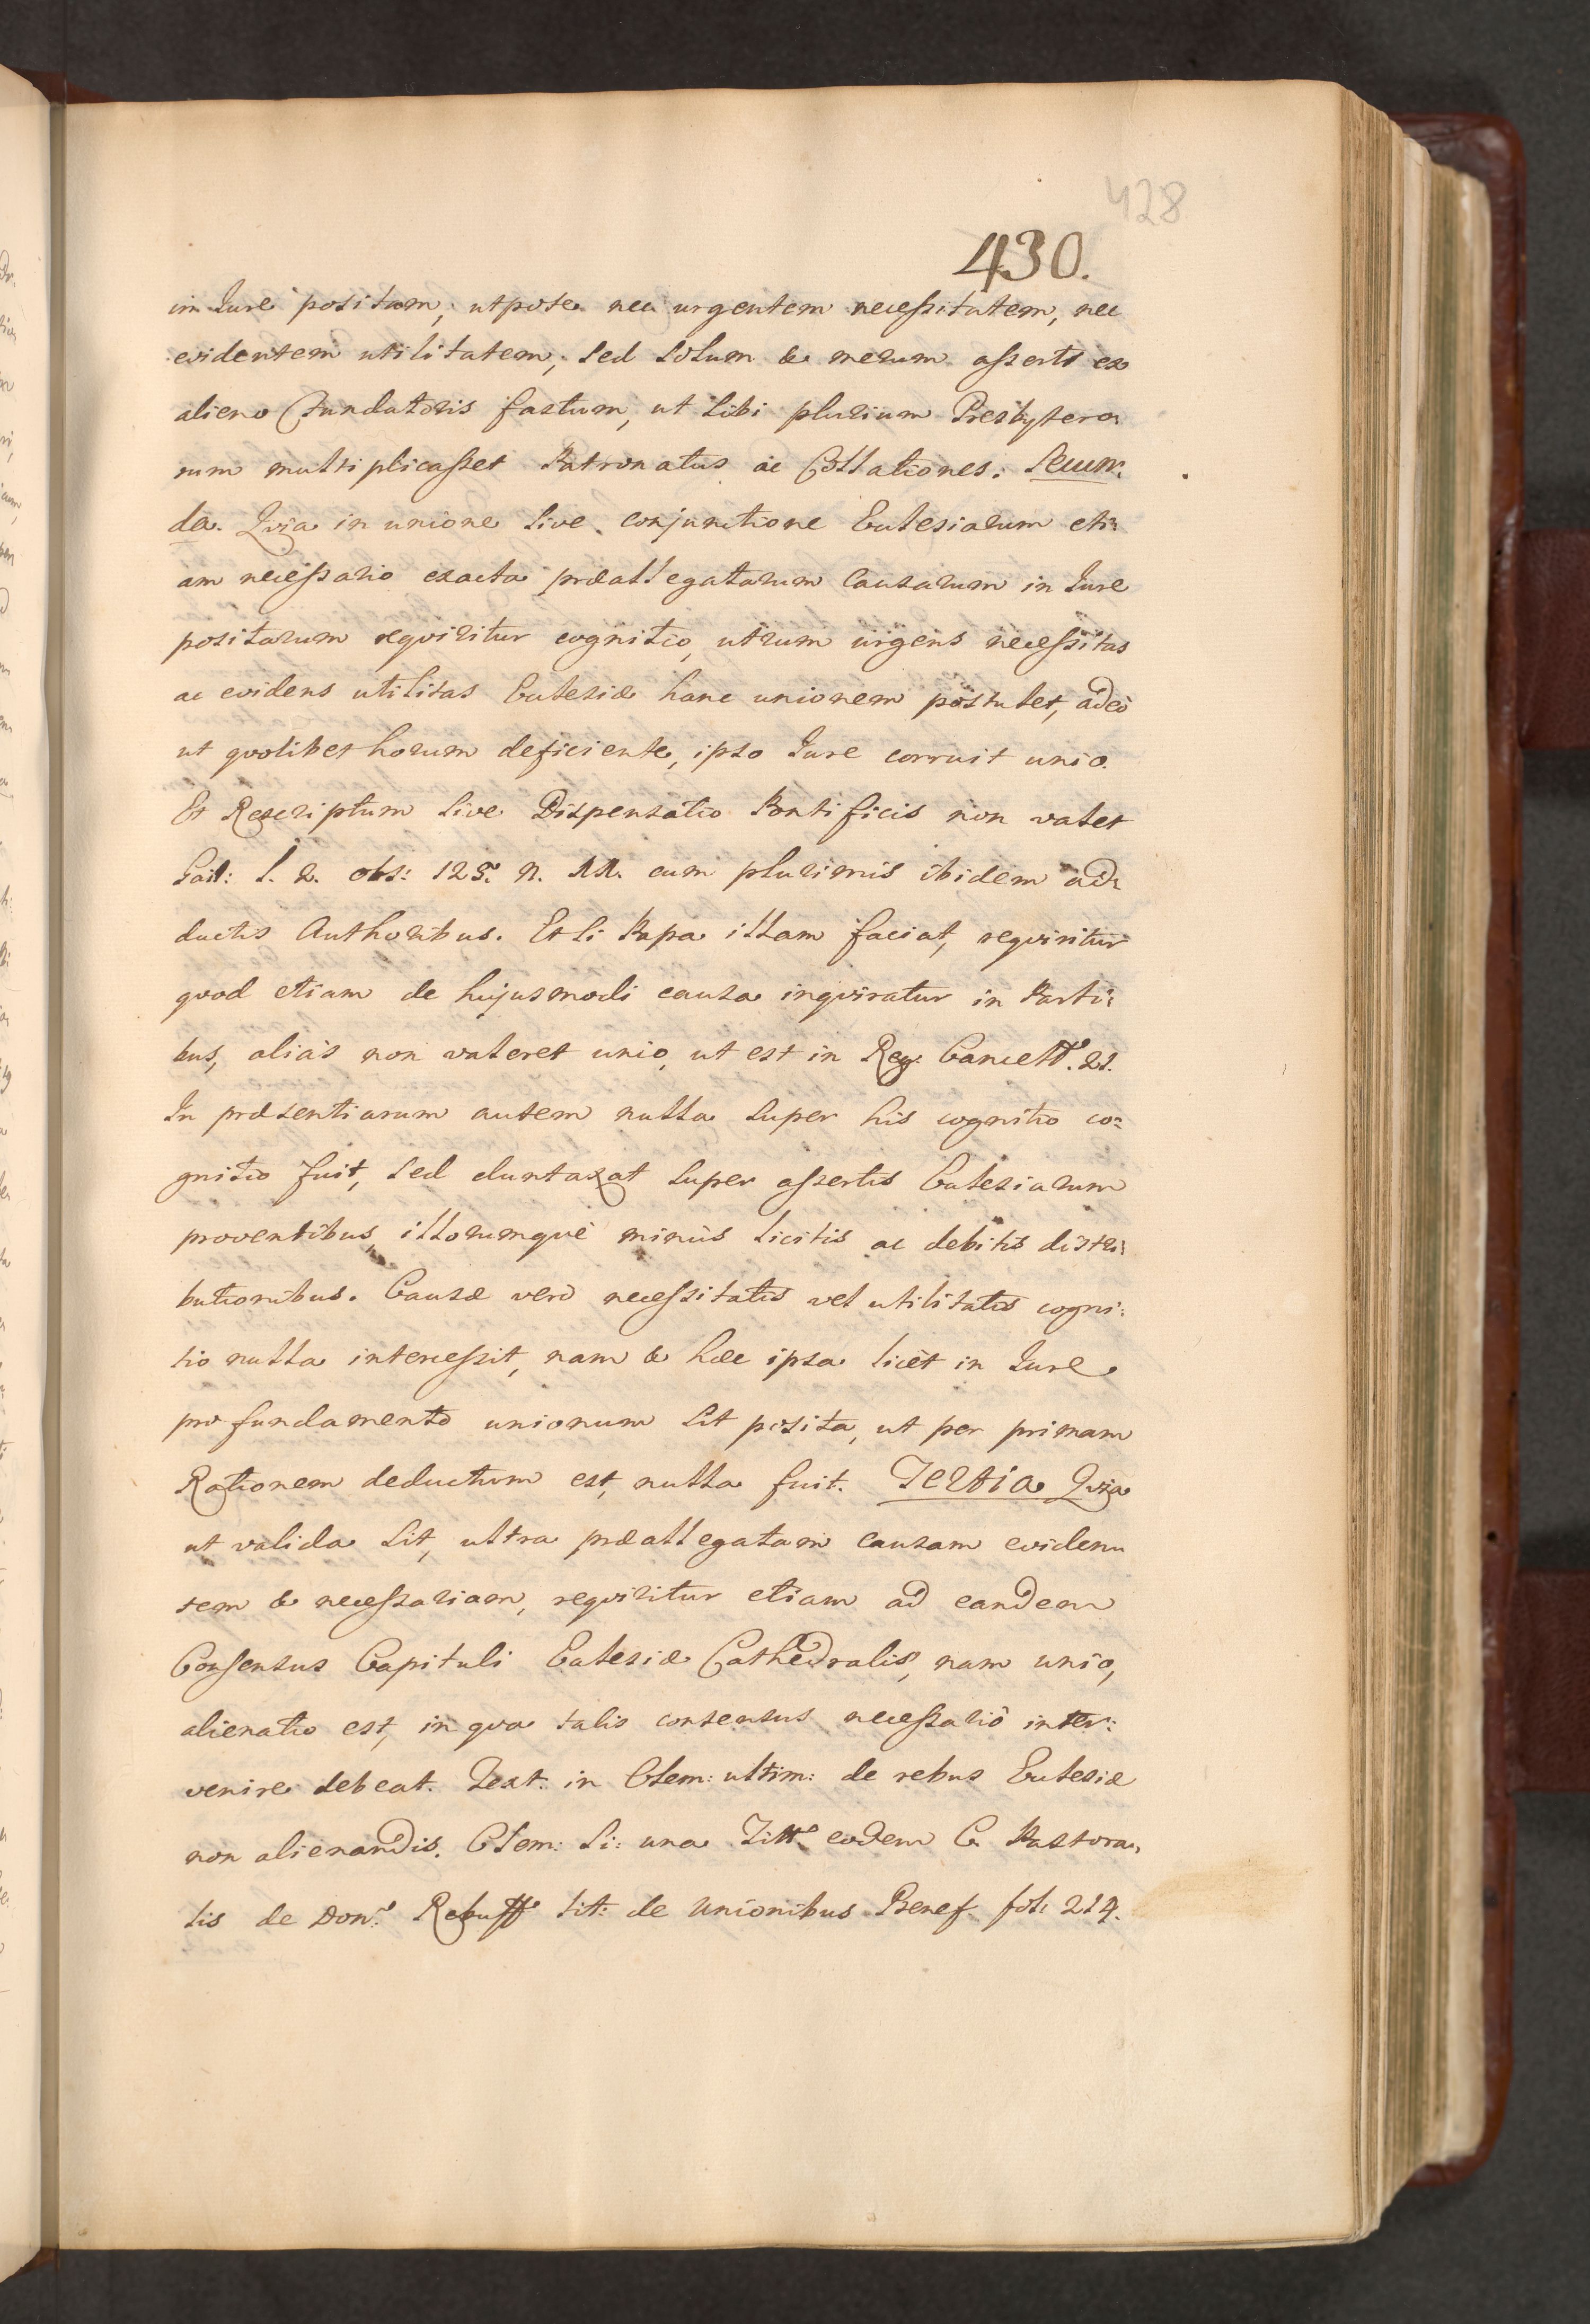 428
430.
in Jure positam, utpote nec urgentem necessitatem, nec
evidentem utilitatem, sed solum & merum asserti ex
alieno Fundatoris fastum, ut sibi plurium Presbytero:
rum multiplicasset Patronatus ac Collationes: Secun:
da. Qvia in unione sive conjunctione Ecclesiarum eti:
am necessario exacta præallegatarum Causarum in Jure
positarum reqviritur cognitio, utrum urgens necessitas
ac evidens utilitas Ecclesiæ hanc unionem postulet, adeò
ut qvolibet horum deficiente, ipso Jure corruit unio.
Et Rescriptum sive Dispensatio Pontificis non valet
Gail: l. 2. obs: 125. n. 11. cum plurimis ibidem ad:
ductis Authoribus. Et si Papa illam faciat, reqviritur
qvod etiam de hujusmodi causa inqviratur in Parti:
bus, aliàs non valeret unio, ut est in Reg: Cancell. 21.
In præsentiarum autem nulla super his cognitio co:
gnitio fuit, sed duntaxat super assertis Ecclesiarum
proventibus, illorumqvè minùs licitis ac debitis distri:
butionibus. Causæ verò necessitatis vel utilitatis cogni:
tio nulla intercessit, nam & hæc ipsa licèt in Jure
pro fundamento unionum sit posita, ut per primam
Rationem deductum est, nulla fuit. Tertia Qvia
ut valida sit, ultra præallegatam causam eviden:
tem & necessariam, reqviritur etiam ad eandem
Consensus Capituli Ecclesiæ Cathedralis, nam unio,
alienatio est, in qva talis consensus necessariò inter:
venire debeat. Text: in Clem: ultim: de rebus Ecclesiæ
non alienandis. Clem: Si: una Titt. eodem C. Pastora:
lis de Don. Rebuff tit: de Unionibus Benef. fol: 214.